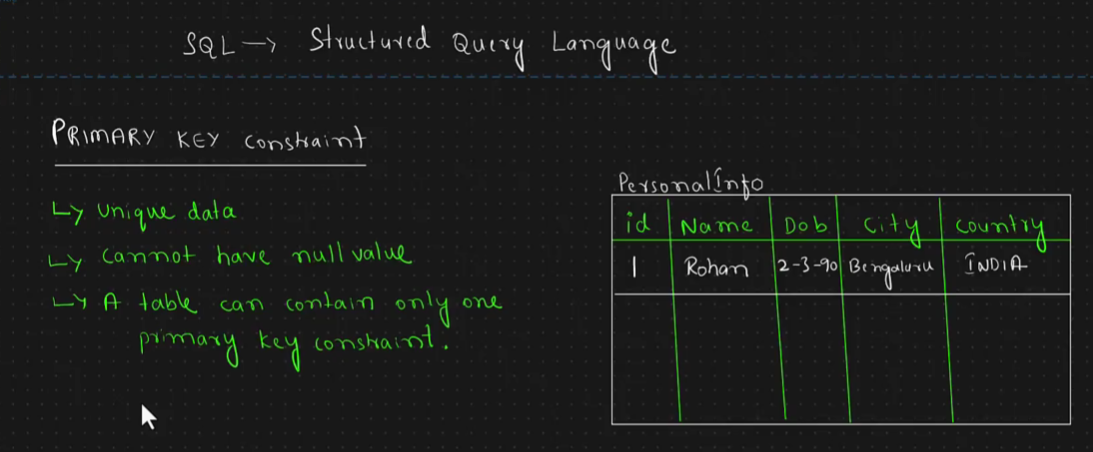 SQL → Structured Query Language
PRIMARY KEY constraint
↳ unique data
↳ cannot have null value
↳ A table can contain only one
primary key constraint.
PersonalInfo
id Name Dob City Country
1 Rohan 2-3-90 Bengaluru INDIA